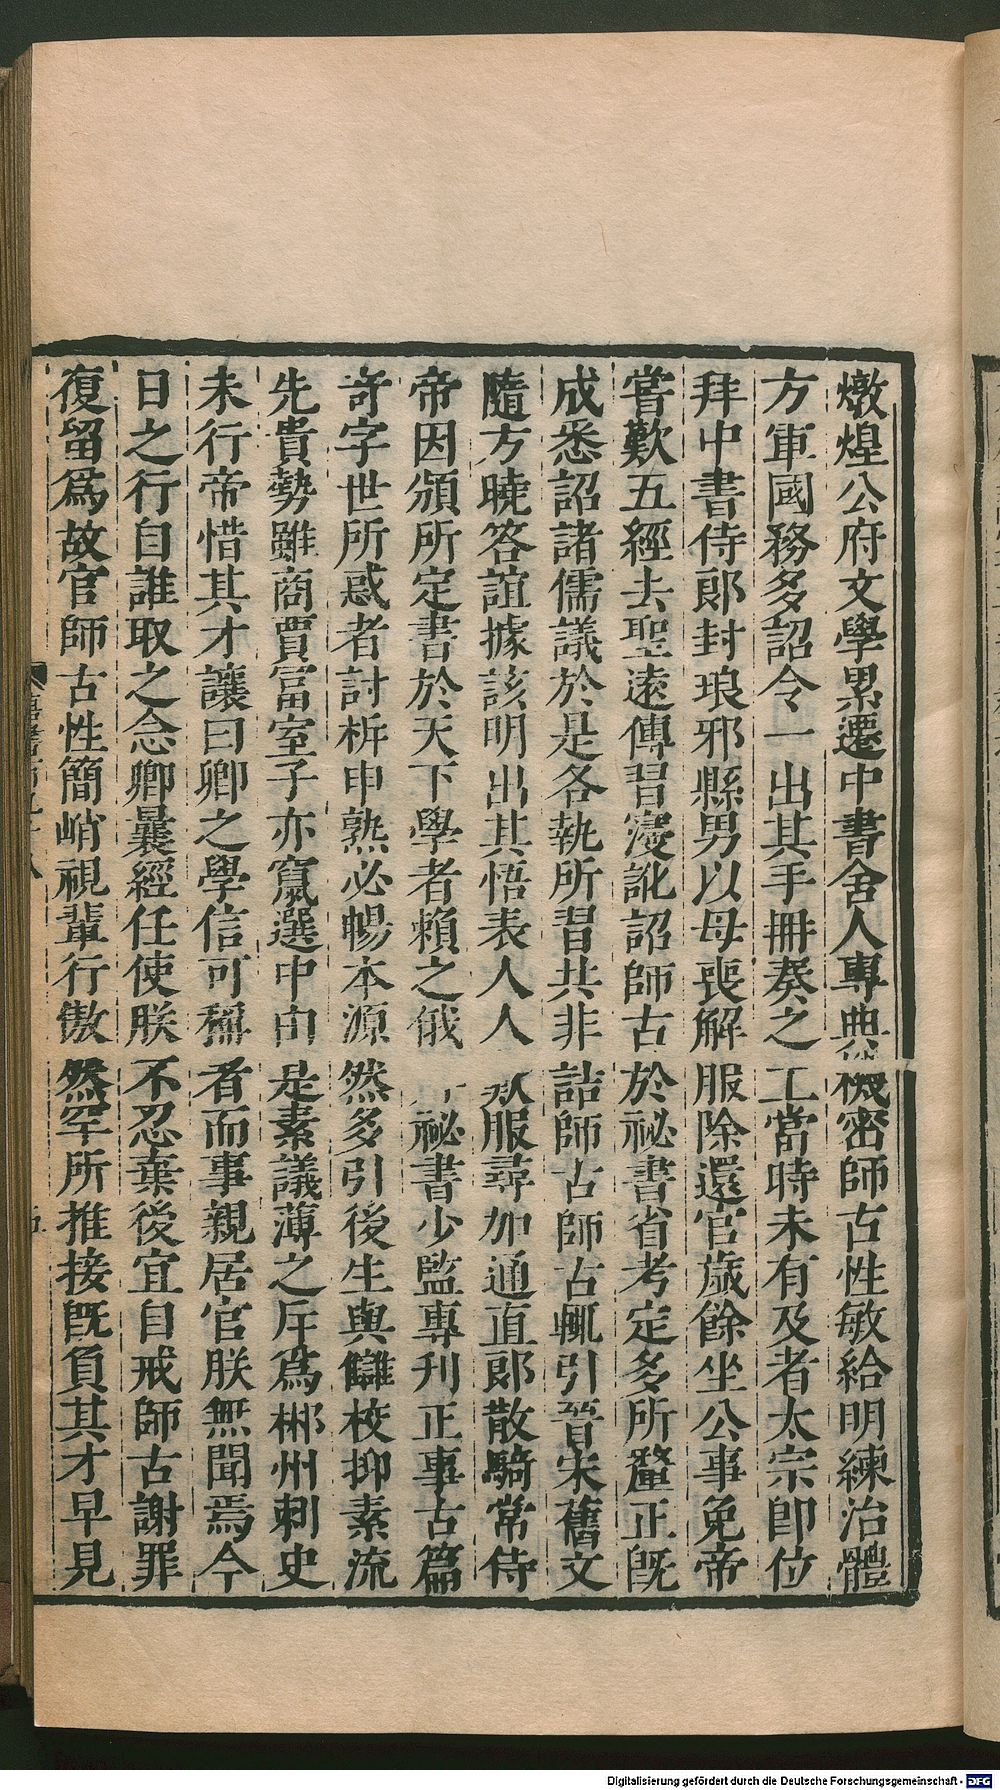 燉煌公府文學累遷中書舍人專典機密師古性敏給明練治體
方軍國務多詔令一出其手冊奏之工當時未有及者太宗即位
拜中書侍郎封琅邪縣男以母喪解服除還官歲餘坐公事免帝
嘗歎五經去聖遠傳習寖訛詔師古於祕書省考定多所釐正既
成悉詔諸儒議於是各執所習共非詰師古師古輒引晉宋舊文
隨方曉答誼據該明出其悟表人人歎服尋加通直郎散騎常侍
帝因頒所定書於天下學者賴之俄 祕書少監專刊正事古篇
奇字世所惑者討析申熟必暢本源然多引後生與讎校抑素流
先貴勢雖商賈富室子亦竄選中由是素議薄之斥為郴州刺史
未行帝惜其才讓曰卿之學信可稱者而事親居官朕無聞焉今
日之行自誰取之念卿曩經任使朕不忍棄後宜自戒師古謝罪
復留爲故官師古性簡峭視輩行傲然罕所推接既負其才早見
五
Digitalisierung gefördert durch die Deutsche Forschungsgemeinschaft - DFG